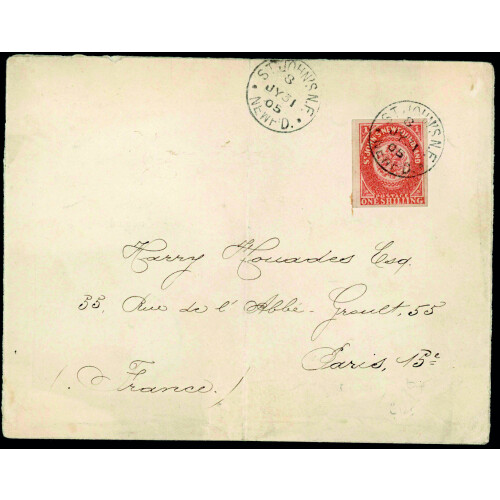 ST. JOHN'S N.F.
8
JY 31
05
NEWF'D.
ST. JOHN'S N.F.
8
JY
05
NEWF'D.
ST. JOHN'S NEWFOUNDLAND
POSTAGE
ONE SHILLING
Harry Houades Esq.
55, Rue de l'Abbé-Groult, 55
Paris, 15e
(France)